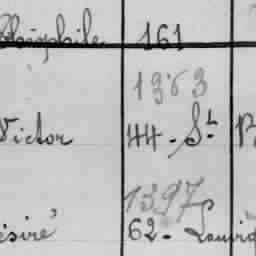 Théophile 161
1963
Victor 44 - St
1397
ésiré 62 - Louvid